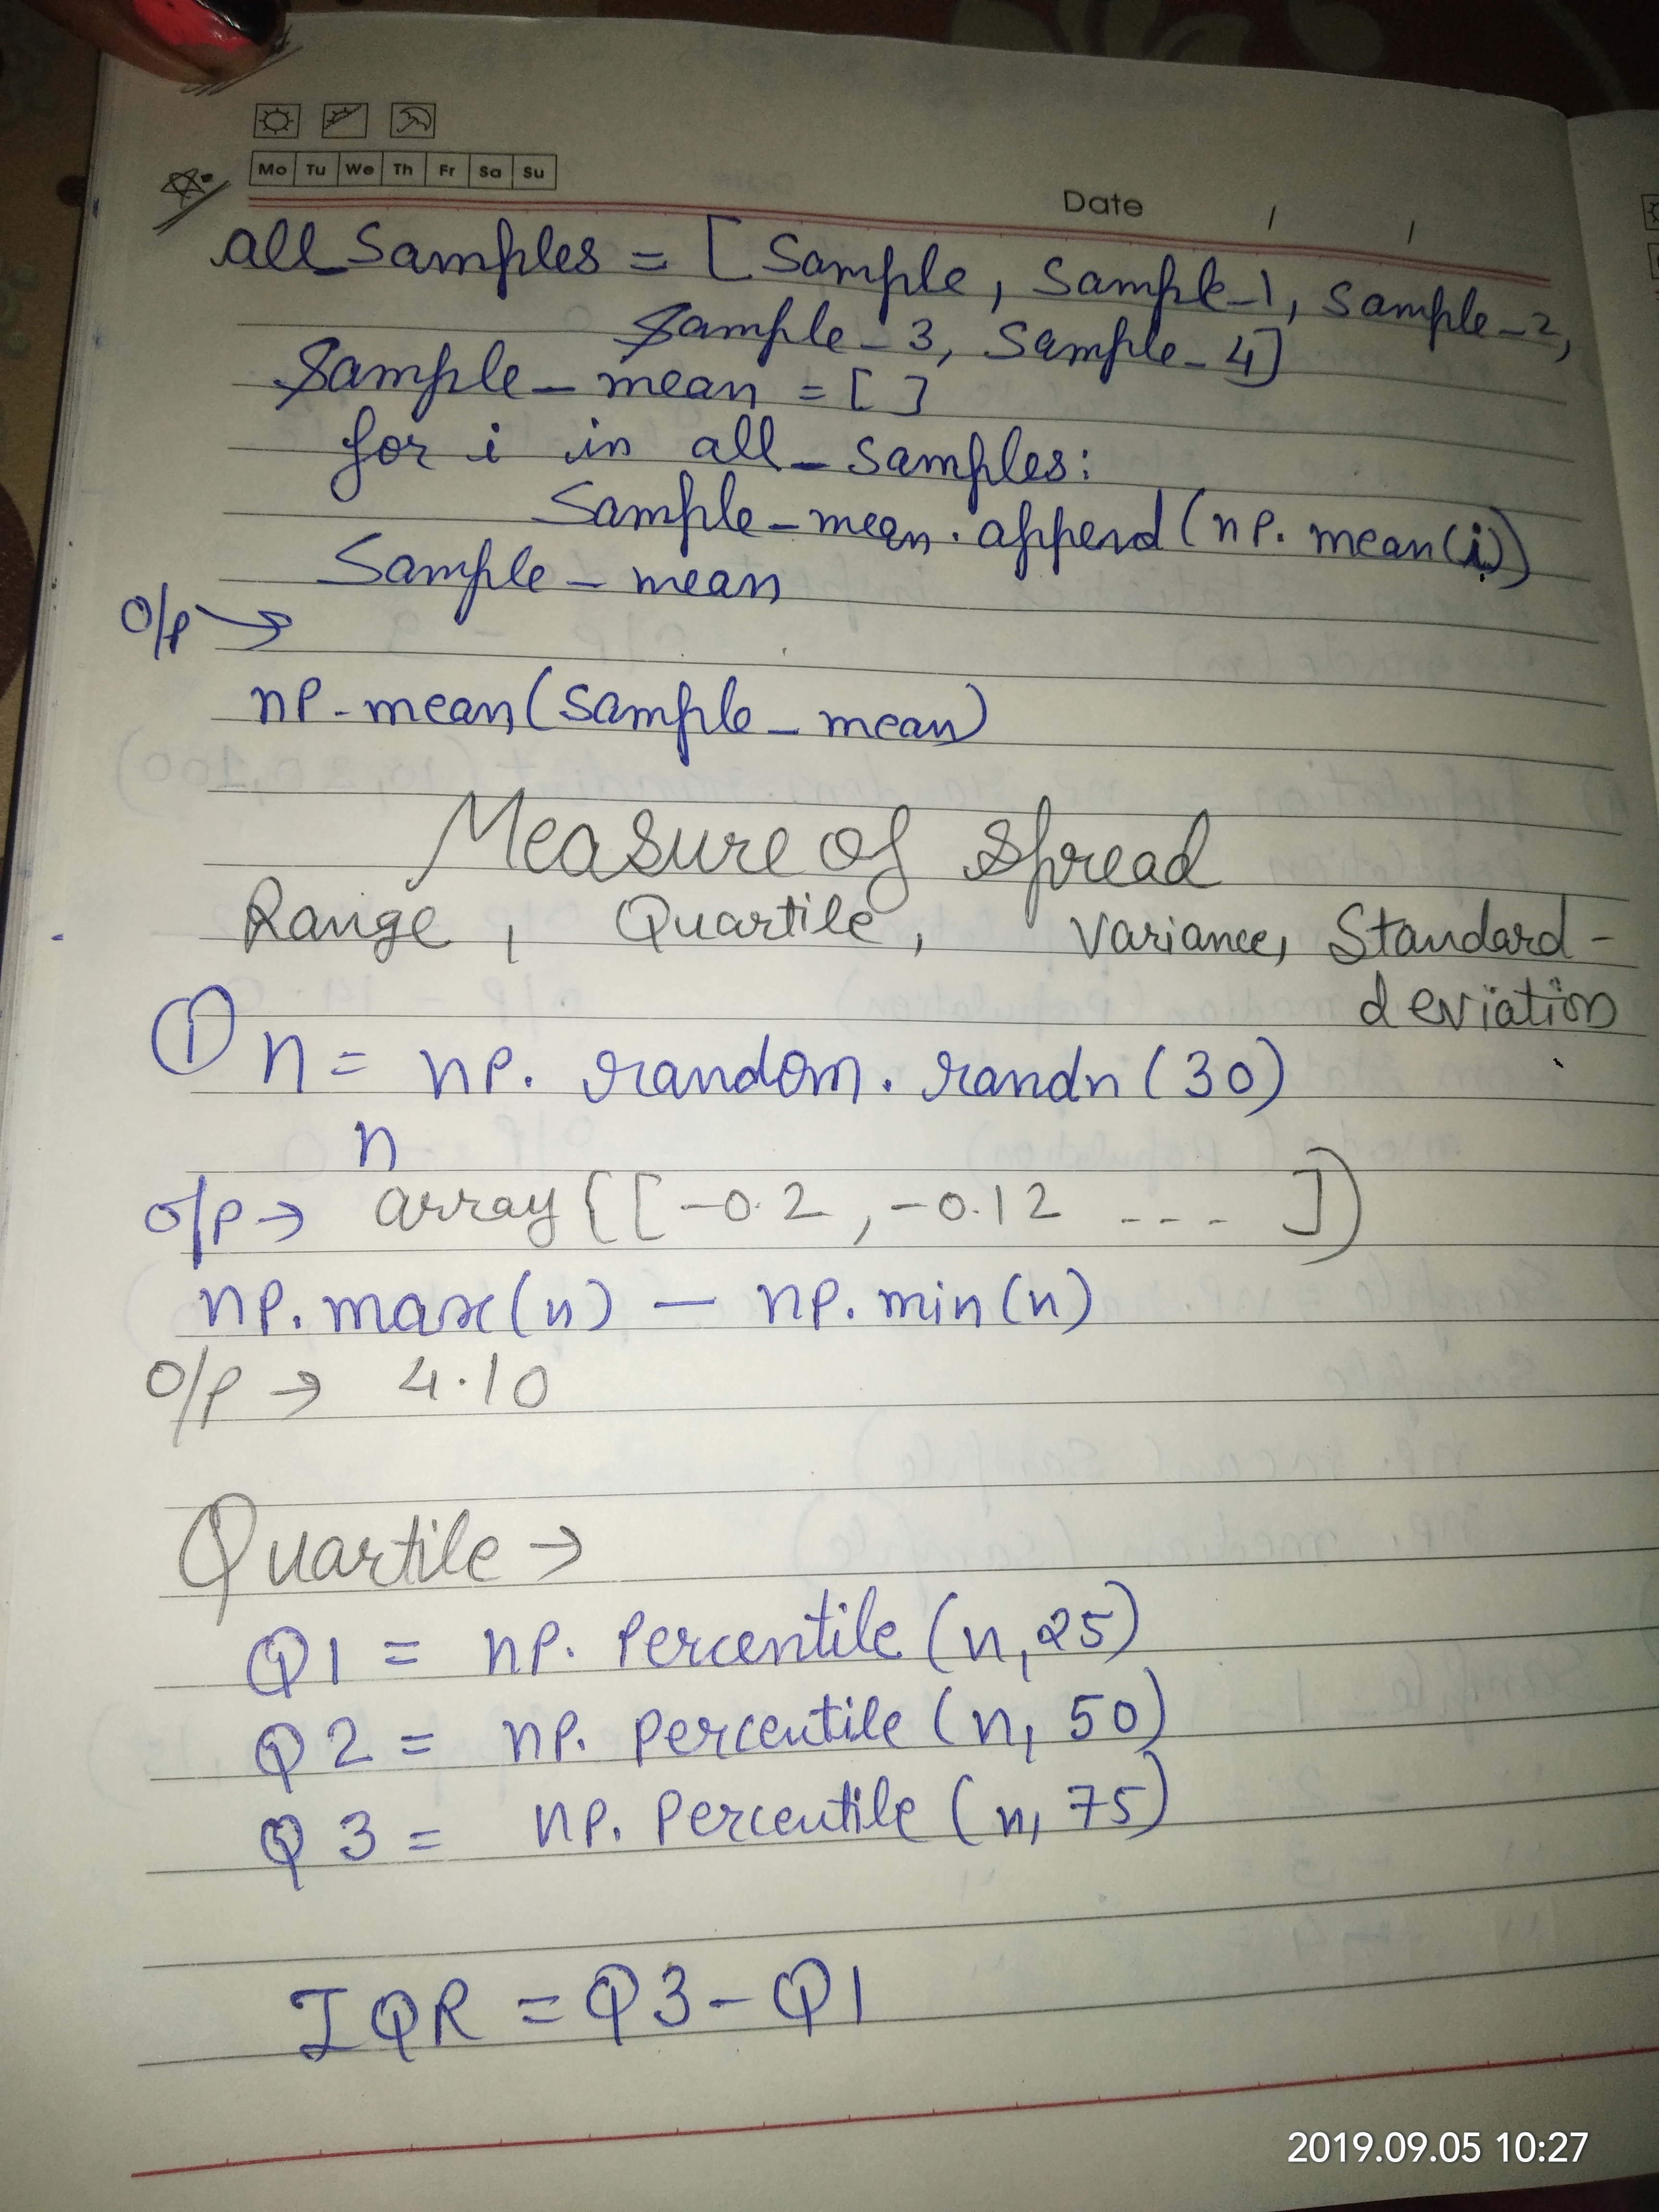 Mo Tu We Th Fr Sa Su
Date / /
all_Samples = [Sample, Sample_1, Sample_2,
Sample_3, Sample_4]
Sample_mean = [ ]
for i in all_samples:
Sample_mean.append(np.mean(i))
Sample_mean
O/P →
np.mean(Sample_mean)
Measure of Spread
Range, Quartile, Variance, Standard-
deviation
① n = np.random.randn(30)
n
O/P → array([-0.2, -0.12 ---- ])
np.max(n) - np.min(n)
O/P → 4.10
Quartile →
Q1 = np.percentile(n,25)
Q2 = np.percentile(n, 50)
Q3 = np.percentile(n, 75)
IQR = Q3-Q1
2019.09.05 10:27